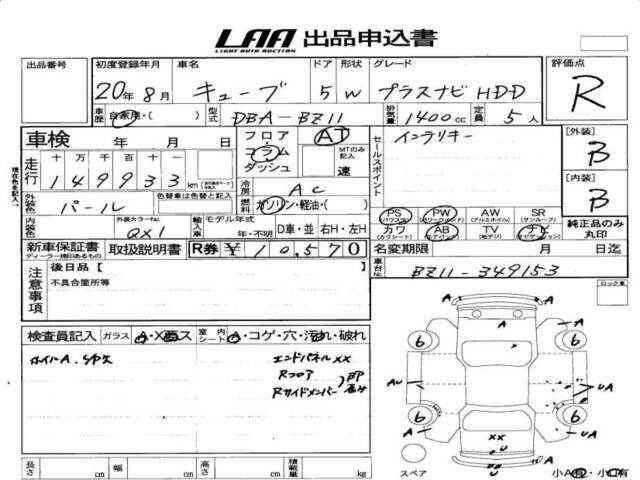 LAA 出品申込書
LIGHT AUTO AUCTION
出品番号 初度登録年月 車名 ドア 形状 グレード 評価点
20年8月 キューブ 5 W プラスナビ HDD R
車歴 自家用・( ) 型式 DBA-BZ11 排気量 1400cc 定員 5人
車検 年 月 日 フロア・コラム・ダッシュ AT MTのみ記入 速
セールスポイント インテリキー
[外装] B
走行 十万千百十一
149933 km
冷房 AC
[内装] B
外装色 パール 色替車は色替と記入 燃料 ガソリン・軽油・( )
内装色 外装カラーNo. QX1 輸入車 モデル年式 年・不明 D車・並 右H・左H
PS (パワステ) PW (パワーウィンド) AW (アルミホイル) SR (サンルーフ)
カワ (カワシート) AB (エアバック) TV (地デジ) ナビ (ナビゲーション)
純正品のみ丸印
新車保証書 ディーラー捺印あるもの 取扱説明書 R券 ¥10,570
名変期限 月 日迄
車台No. BZ11-349153
注意事項 後日品 [
不具合箇所等
ロック車
検査員記入 ガラス A・X・ス 室内シート A・コゲ・穴・汚れ・破れ
ホイルA、
エンドパネルXX
Rフロア
Rサイドメンバー
A A
6 6
AU UA
A
6 6
A UA
XX
U
A
U
長さ cm 幅 cm 高さ cm 積載量 kg
スペア 小A有・小U有
→現在色を記入